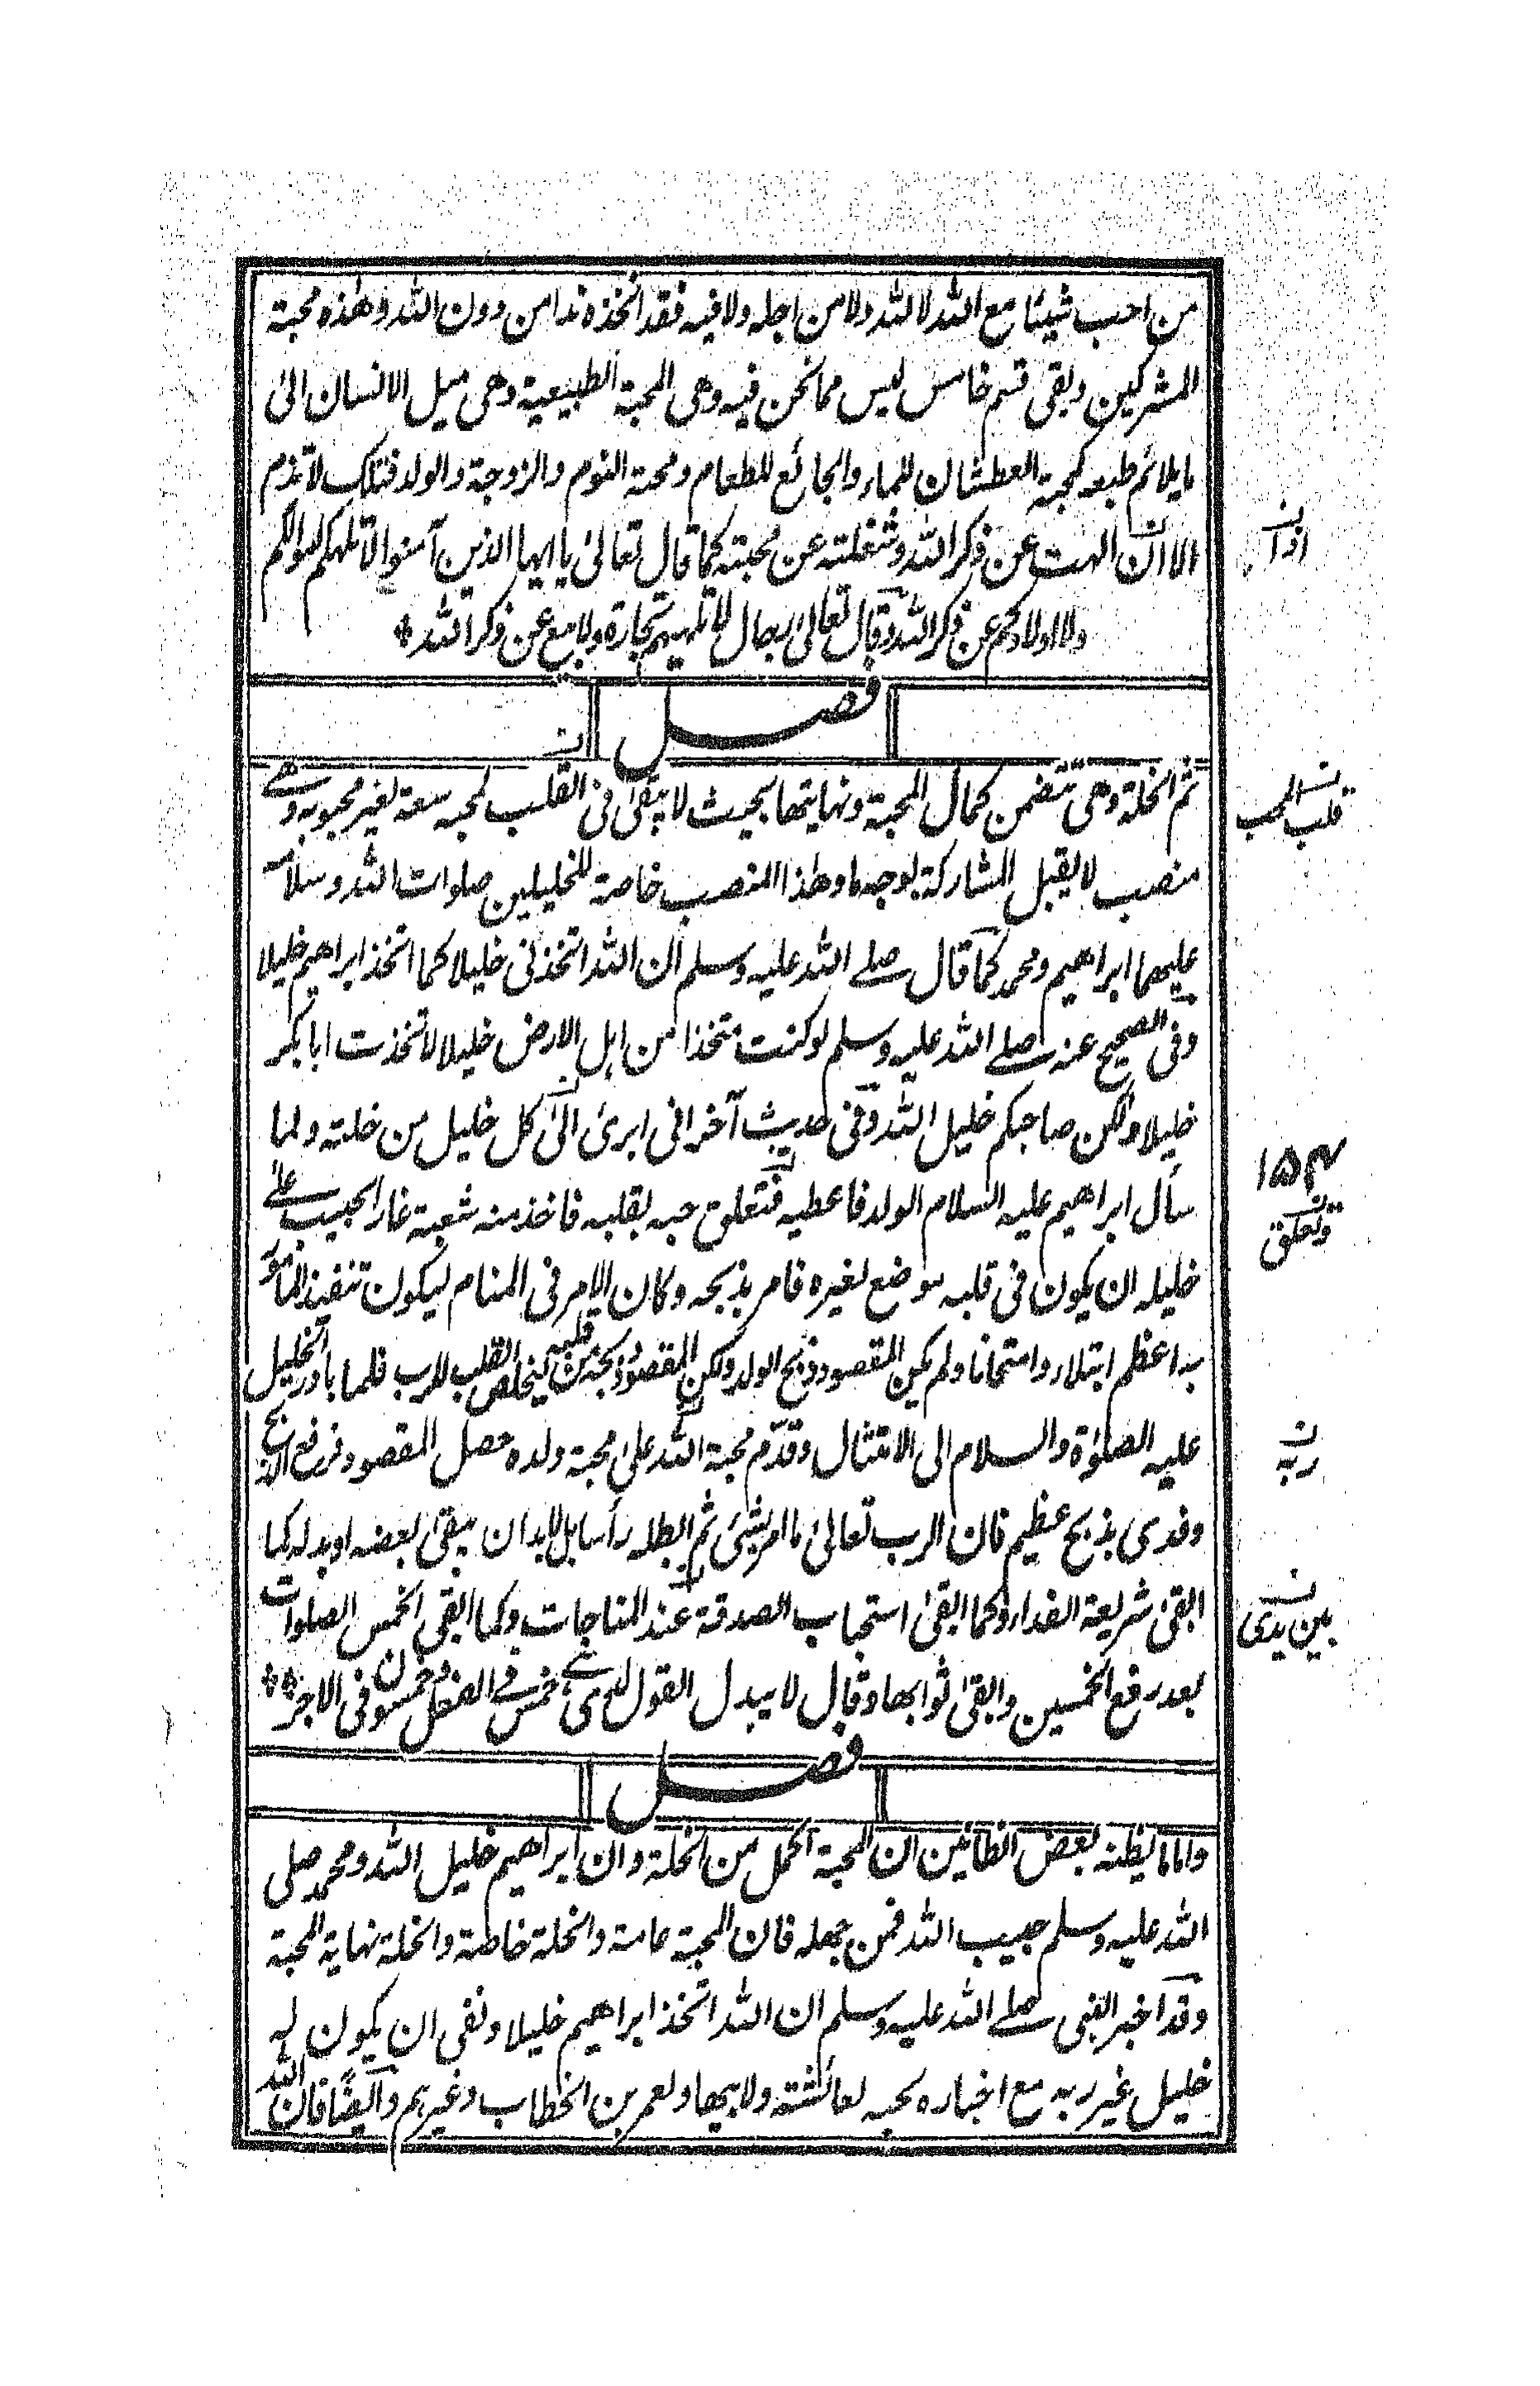 من احب شيئا مع الله لا لله ولا من اجله ولا فيه فقد اتخذه ندا من دون الله وهذه محبة
المشركين وبقى قسم خامس ليس مما نحن فيه وهى المحبة الطبيعية وهى ميل الانسان الى
ما يلائم طبعه كمحبة العطشان للماء والجائع للطعام ومحبة النوم والزوجة والولد فتلك لا تذم
الا ان الهت عن ذكر الله وشغلته عن محبته كما قال تعالى يا ايها الذين آمنوا لا تلهكم اموالكم
ولا اولادكم عن ذكر الله وقال تعالى رجال لا تلهيهم تجارة ولا بيع عن ذكر الله *
فصل
ثم الخلة وهى تتضمن كمال المحبة ونهايتها بحيث لا يبقى فى القلب لمحبه سعة لغير محبوبه وهے
منصب لا يقبل المشاركة بوجه ما وهذا المنصب خاصة للخليلين صلوات الله وسلامه
عليهما ابراهيم ومحمد كما قال صلے الله عليه وسلم ان الله اتخذنى خليلا كما اتخذ ابراهيم خليلا
وفى الصحيح عنه صلے الله عليه وسلم لو كنت متخذا من اهل الارض خليلا لاتخذت ابا بكر
خليلا ولكن صاحبكم خليل الله وفى حديث آخر انى ابرئ الى كل خليل من خلته ولما
سأل ابراهيم عليه السلام الولد فاعطيه فتعلق حبه بقلبه فاخذ منه شعبة غار الحبيب علے
خليله ان يكون فى قلبه موضع لغيره فامر بذبحه وكان الامر فى المنام ليكون تنفيذ المأمور
به اعظم ابتلاء وامتحانا ولم يكن المقصود ذبح الولد ولكن المقصود ذبحه من قلبه ليخلص القلب للرب فلما بادر الخليل
عليه الصلوة والسلام الى الامتثال وقدّم محبة الله على محبة ولده حصل المقصود فرفع الذبح
وفدى بذبح عظيم فان الرب تعالى ما امر بشئ ثم ابطله رأسا بل لابد ان يبقى بعضه او بدله كما
ابقى شريعة الفداء وكما ابقى استحباب الصدقة عند المناجات وكما ابقى الخمس الصلوات
بعد رفع الخمسين وابقى ثوابها وقال لا يبدل القول لدى هى خمس فے الفعل وخمسون فى الاجر **
فصل
واما ما يظنه بعض الظانين ان المحبة اكمل من الخلة وان ابراهيم خليل الله ومحمد صلى
الله عليه وسلم حبيب الله فمن جهله فان المحبة عامة والخلة خاصة والخلة نهاية المحبة
وقد اخبر النبى صلے الله عليه وسلم ان الله اتخذ ابراهيم خليلا ونفى ان يكون له
خليل غير ربه مع اخباره بحبه لعائشة ولابيها ولعمر بن الخطاب وغيرهم وايضًا فان الله
قلب المحب
١٥٤
وتعلق
ربه
بين يدى